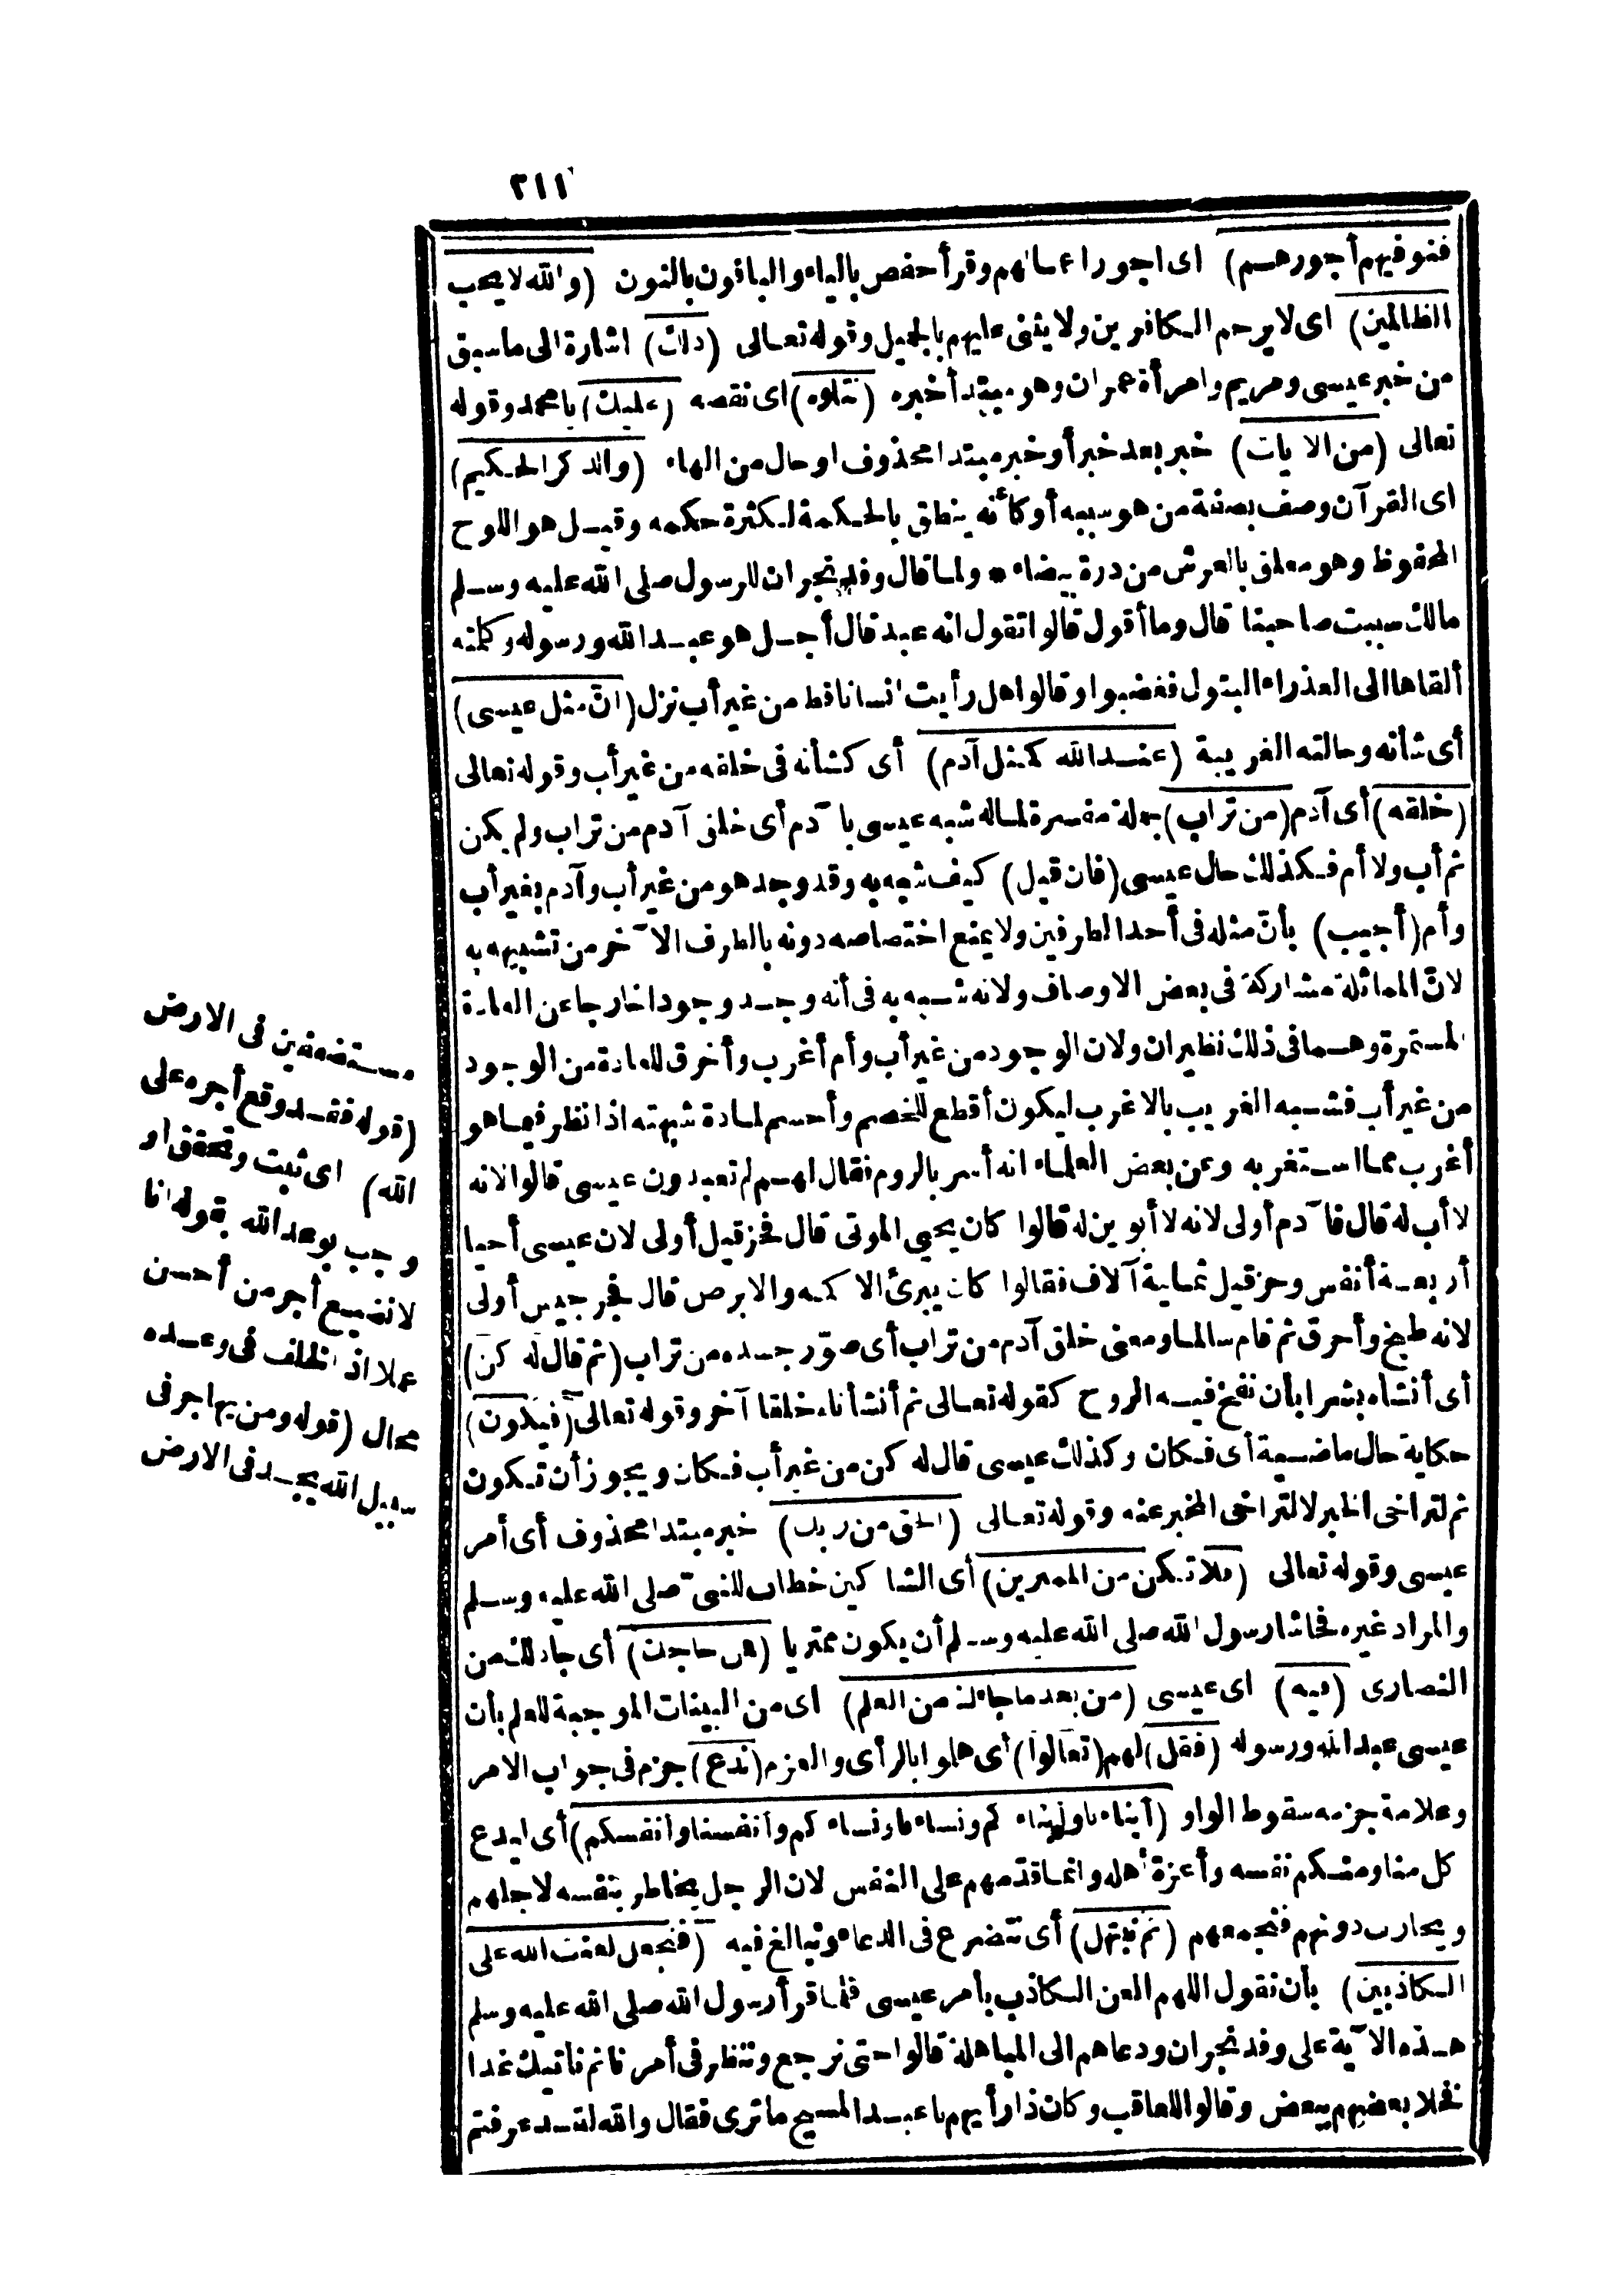 ٢١١
فنوفيهم أجورهم) اى اجور اعمالهم وقرأ حفص بالياء والباقون بالنون (والله لا يحب
الظالمين) اى لا يرحم الكافرين ولا يثنى عليهم بالجميل وقوله تعالى (ذلك) اشارة الى ما سبق
من خبر عيسى ومريم وامرأة عمران وهو مبتدأ خبره (نتلوه) اى نقصه (عليك) يا محمد وقوله
تعالى (من الآيات) خبر بعد خبر أو خبر مبتدا محذوف او حال من الهاء (والذكر الحكيم)
اى القرآن وصف بصفة من هو سببه أو كأنه ينطق بالحكمة لكثرة حكمه وقيل هو اللوح
المحفوظ وهو معلق بالعرش من درة بيضاء * ولما قال وفد نجران للرسول صلى الله عليه وسلم
مالك سببت صاحبنا قال وما أقول قالوا تقول انه عبد قال أجل هو عبد الله ورسوله وكلمته
ألقاها الى العذراء البتول فغضبوا وقالوا هل رأيت انسانا قط من غير أب نزل (انّ مثل عيسى)
أى شأنه وحالته الغريبة (عند الله كمثل آدم) أى كشأنه فى خلقه من غير أب وقوله تعالى
(خلقه) أى آدم (من تراب) جملة مفسرة لماله شبه عيسى بآدم أى خلق آدم من تراب ولم يكن
ثم أب ولا أم فكذلك حال عيسى (فان قيل) كيف شبه به وقد وجد هو من غير أب وآدم بغير أب
وأم (أجيب) بأنّ مثله فى أحد الطرفين ولا يمنع اختصاصه دونه بالطرف الآخر من تشبيهه به
لانّ المماثلة مشاركة فى بعض الاوصاف ولانه شبه به فى أنه وجد وجودا خارجا عن العادة
المستمرة وهما فى ذلك نظيران ولان الوجود من غير أب وأم أغرب وأخرق للعادة من الوجود
من غير أب فشبه الغريب بالاغرب ليكون أقطع للخصم وأحسم لمادة شبهته اذا نظر فيما هو
أغرب مما استغربه وعن بعض العلماء انه أسر بالروم فقال لهم لم تعبدون عيسى قالوا لانه
لا أب له قال فآدم أولى لانه لا أبوين له قالوا كان يحيى الموتى قال فحزقيل أولى لان عيسى أحيا
أربعة أنفس وحزقيل ثمانية آلاف فقالوا كان يبرئ الاكمه والابرص قال فجرجيس أولى
لانه طبخ وأحرق ثم قام سالما ومعنى خلق آدم من تراب أى صوّر جسده من تراب (ثم قال له كن)
أى أنشأه بشرا بأن نفخ فيه الروح كقوله تعالى ثم أنشأناه خلقا آخر وقوله تعالى (فيكون)
حكاية حال ماضية أى فكان وكذلك عيسى قال له كن من غير أب فكان ويجوز أن تكون
ثم لتراخى الخبر لا لتراخى المخبر عنه وقوله تعالى (الحق من ربك) خبر مبتدا محذوف أى أمر
عيسى وقوله تعالى (فلا تكن من الممترين) أى الشاكين خطاب للنبىّ صلى الله عليه وسلم
والمراد غيره فحاشا رسول الله صلى الله عليه وسلم أن يكون ممتريا (فمن حاجك) أى جادلك من
النصارى (فيه) اى عيسى (من بعد ما جاءك من العلم) اى من البينات الموجبة للعلم بأن
عيسى عبد الله ورسوله (فقل) لهم (تعالوا) أى هلموا بالرأى والعزم (ندع) جزم فى جواب الامر
وعلامة جزمه سقوط الواو (أبناءنا وأبناءكم ونساءنا ونساءكم وأنفسنا وأنفسكم) أى ليدع
كل منا ومنكم نفسه وأعزة أهله وانما قدّمهم على النفس لان الرجل يخاطر بنفسه لاجلهم
ويحارب دونهم فنجمعهم (ثم نبتهل) أى نتضرع فى الدعاء ونبالغ فيه (فنجعل لعنت الله على
الكاذبين) بأن نقول اللهم العن الكاذب بأمر عيسى فلما قرأ رسول الله صلى الله عليه وسلم
هذه الآية على وفد نجران ودعاهم الى المباهلة قالوا حتى نرجع وننظر فى أمرنا ثم نأتيك غدا
فخلا بعضهم ببعض وقالوا للعاقب وكان ذا رأيهم يا عبد المسيح ما ترى فقال والله لقد عرفتم
مستضعفين فى الارض
(قوله فقد وقع أجره على
الله) اى ثبت وتحقق او
وجب بوعد الله بقوله انا
لا نضيع أجر من أحسن
عملا اذ الخلف فى وعده
محال (قوله ومن يهاجر فى
سبيل الله يجد فى الارض